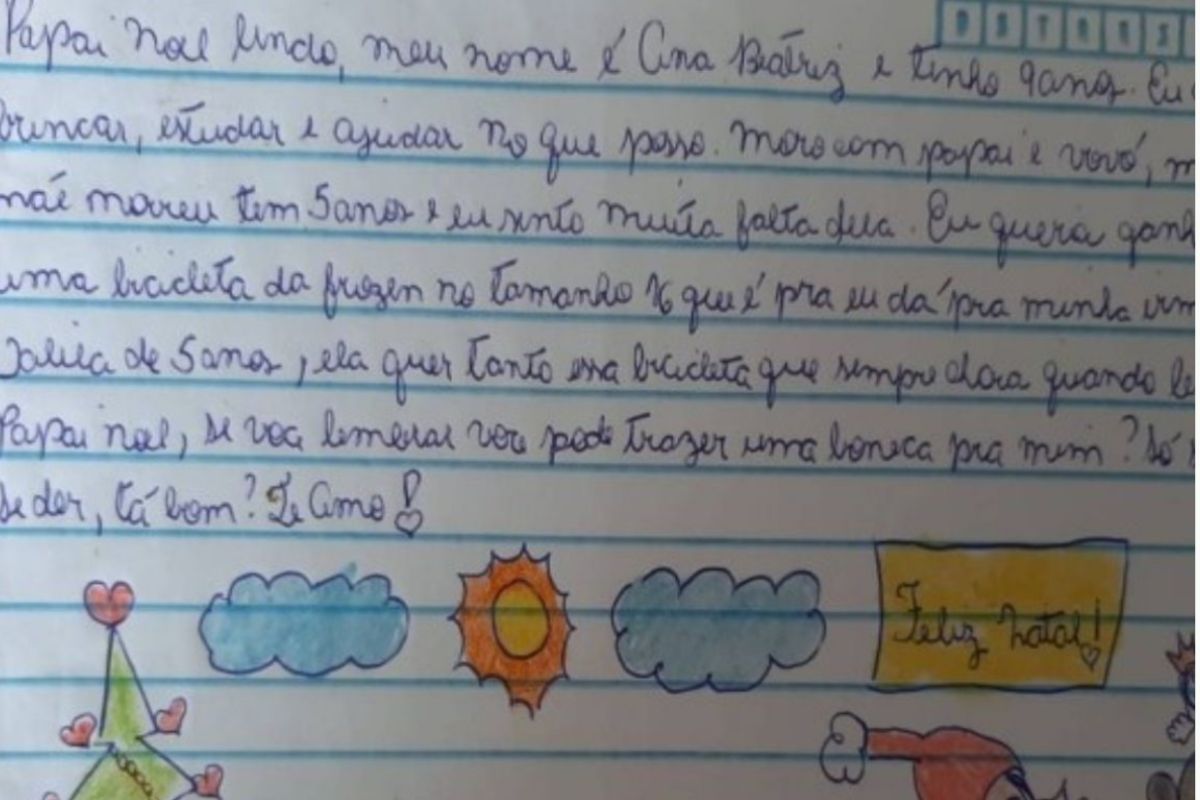 Papai Noel lindo, meu nome é Ana Beatriz e tenho 9 anos. Eu
brincar, estudar e ajudar no que posso. Moro com papai e vovó, m
mãe morreu tem 5 anos e eu sinto muita falta dela. Eu queria ganh
uma bicicleta da frozen no tamanho que é pra eu dá pra minha irm
de 5 anos, ela quer tanto essa bicicleta que sempre chora quando le
Papai noel, se você pode trazer uma boneca pra mim? Só
se der, tá bom? Te Amo!
Feliz Natal!